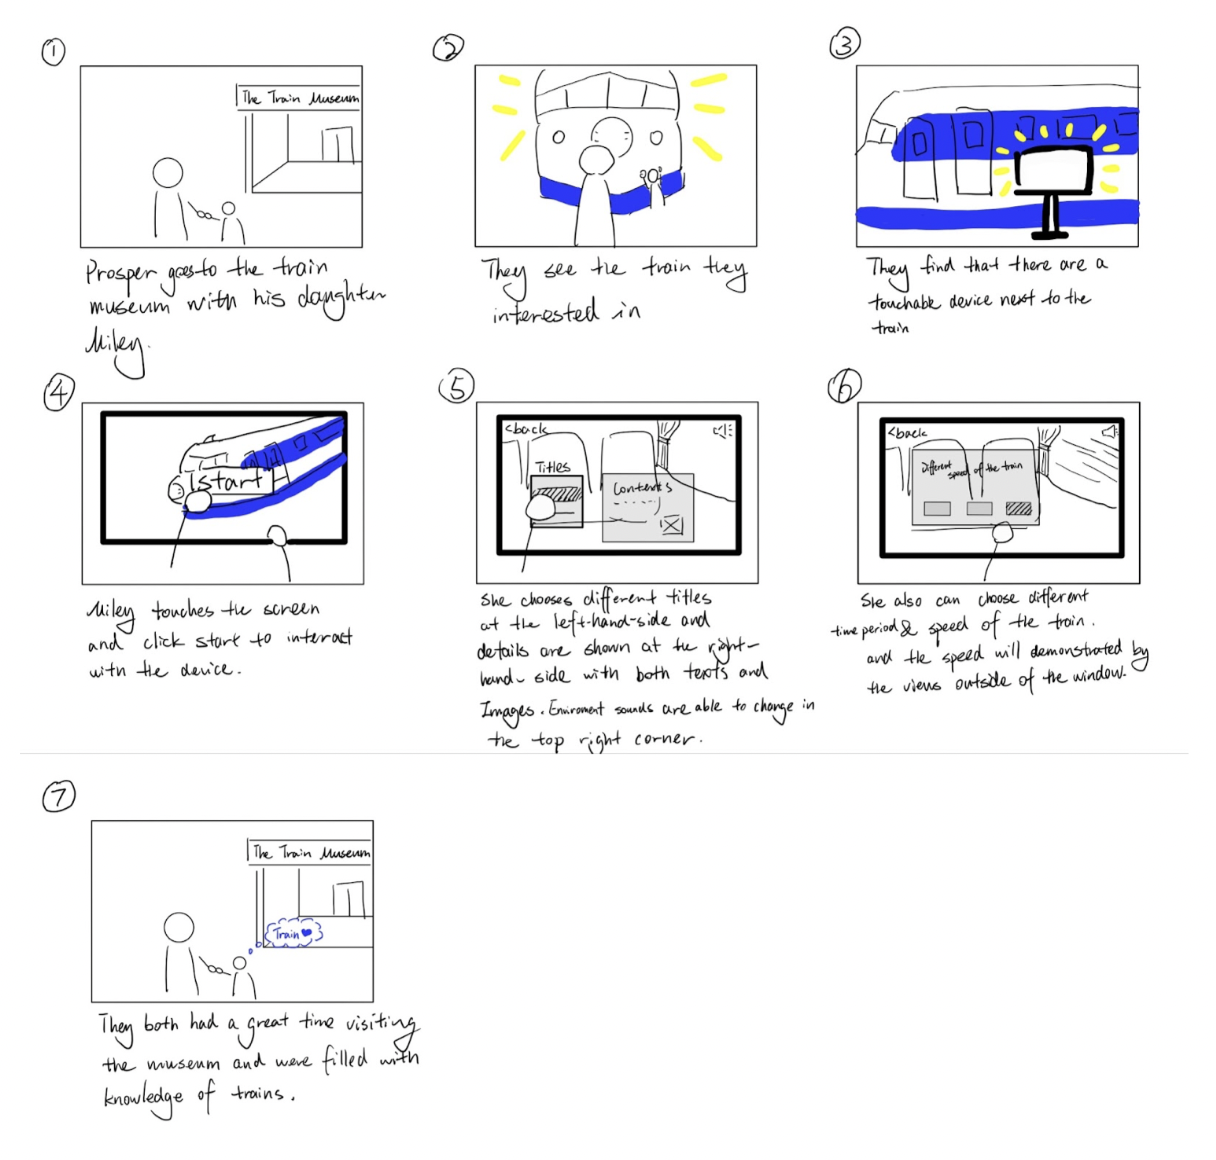 ①
The Train Museum
Prosper goes to the train
museum with his daughter
Miley.
②
They see the train they
interested in
③
They find that there are a
touchable device next to the
train
④
start
Miley touches the screen
and click start to interact
with the device.
⑤
<back
Titles
Contents
She chooses different titles
at the left-hand-side and
details are shown at the right-
hand-side with both texts and
Images. Enviroment sounds are able to change in
the top right corner.
⑥
<back
Different
speed of the train
She also can choose different
time period & speed of the train.
and the speed will demonstrated by
the views outside of the window.
⑦
The Train Museum
Train
They both had a great time visiting
the museum and were filled with
knowledge of trains.